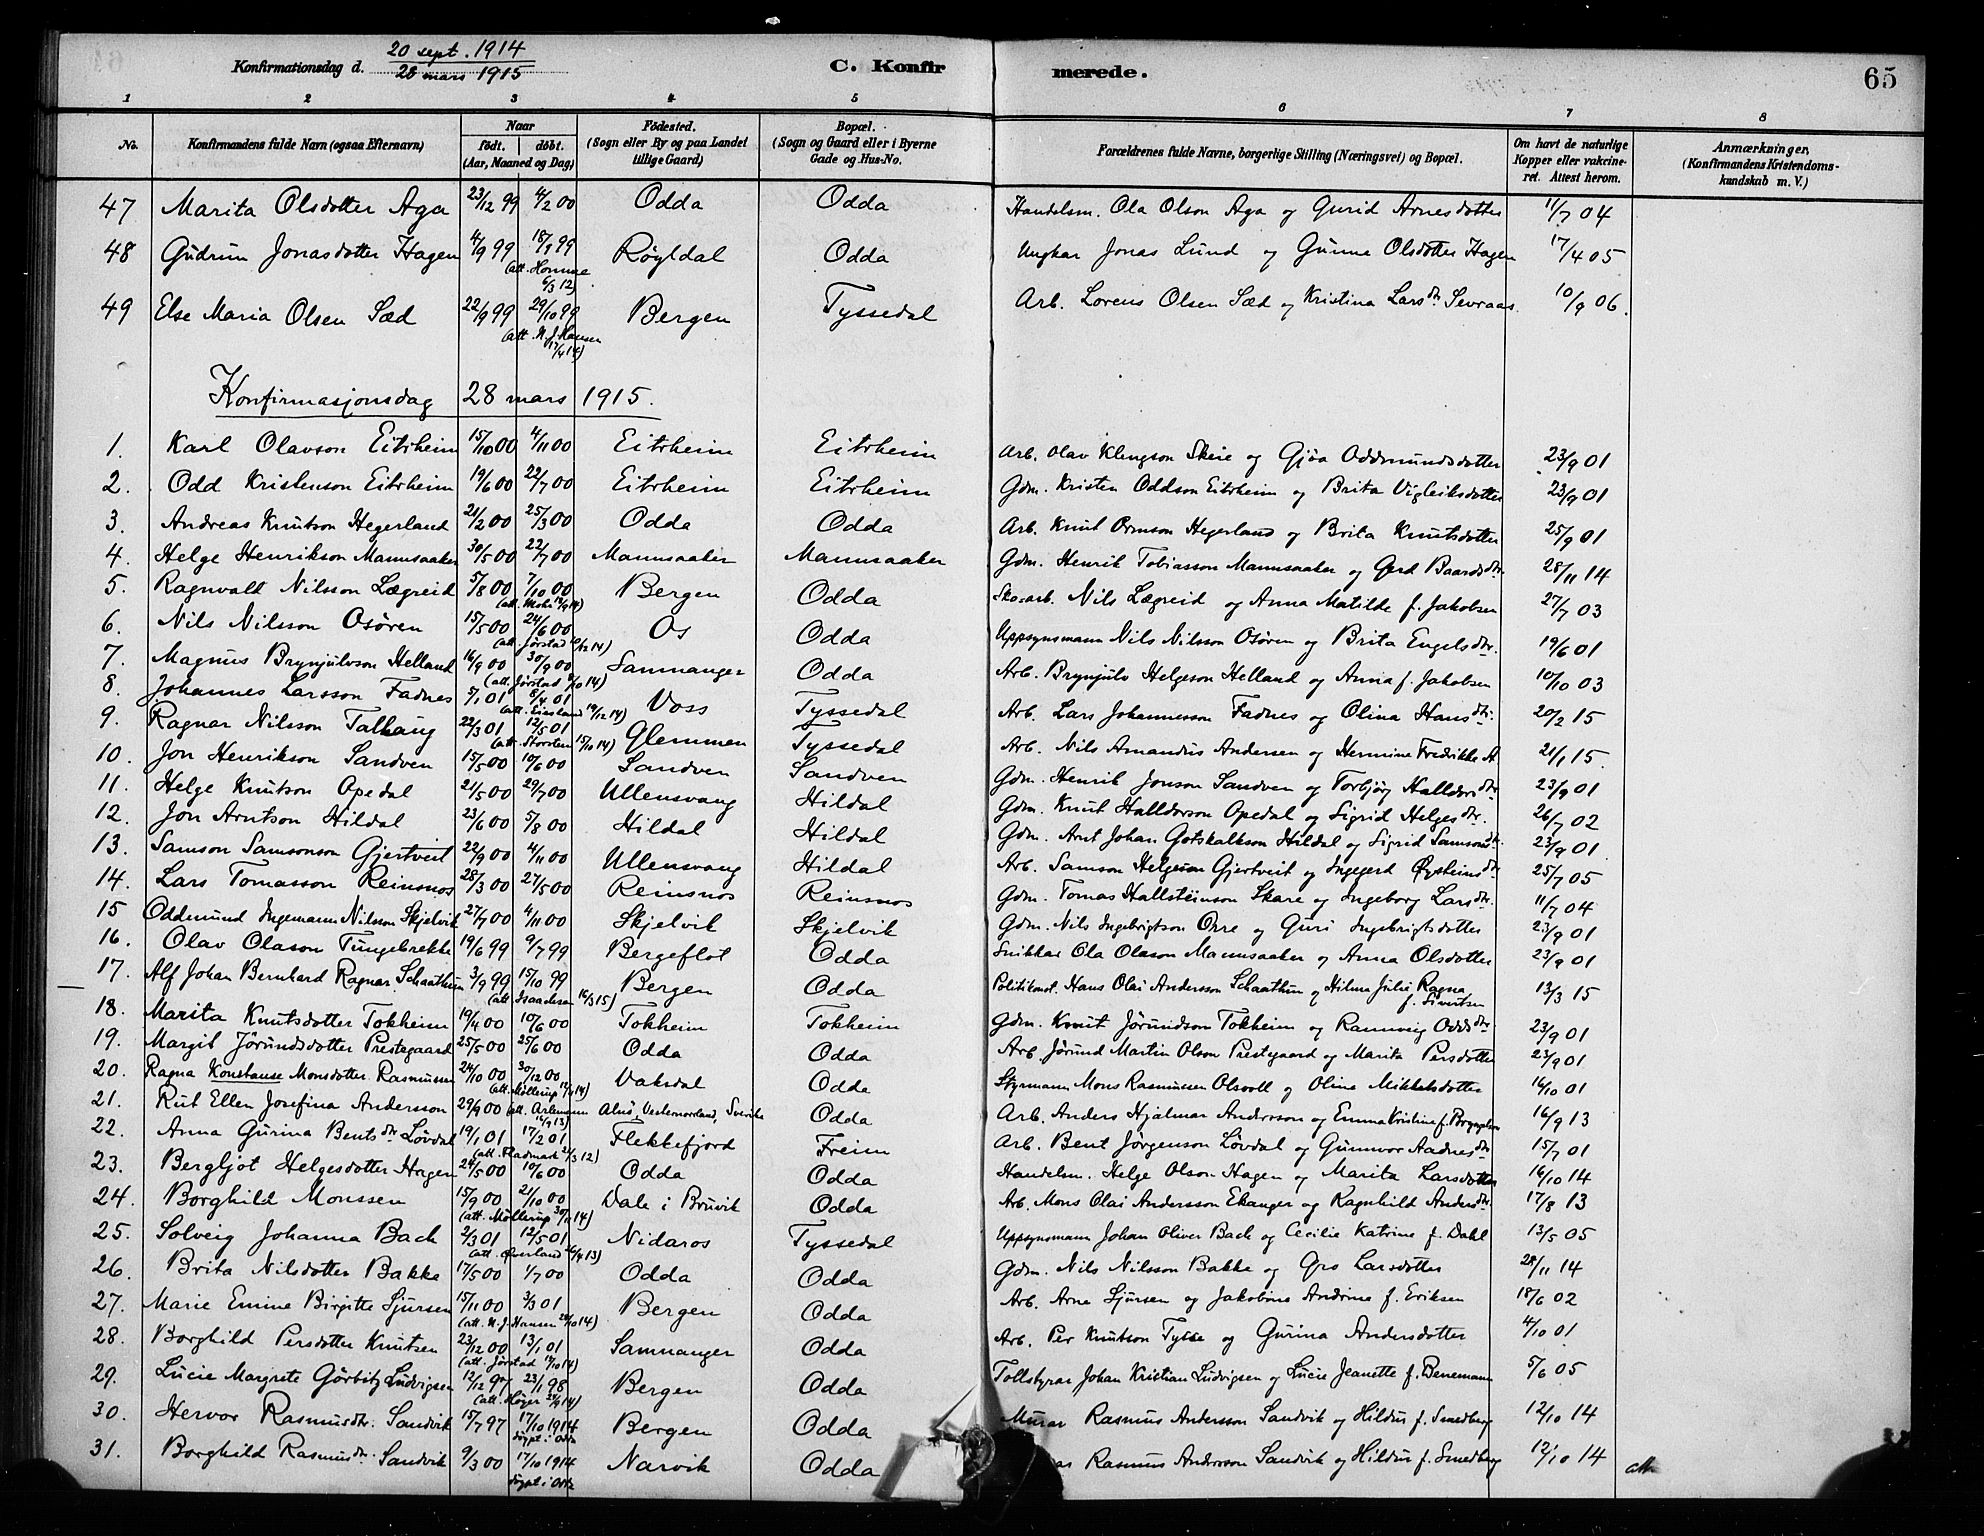 20 sept. 1914
Konfirmationsdag d. 28 mars 1915
C. Konfirmerede.
65
1 2 3 4 5 6 7 8
No. Konfirmandens fulde Navn (ogsaa Efternavn) Naar født. døbt. (Aar, Maaned og Dag) Fødested. (Sogn eller By og paa Landet tillige Gaard) Bopæl. (Sogn og Gaard eller i Byerne Gade og Hus-No. Forældrenes fulde Navne, borgerlige Stilling (Næringsvei) og Bopæl. Om havt de naturlige Kopper eller vakcineret. Attest herom. Anmærkninger, (Konfirmandens Kristendomskundskab m. V.)
47 Marita Olsdotter Aga 23/12 99 4/2 00 Odda Odda Handelsm. Ola Olson Aga og Gurid Arnesdotter 11/7 04
48 Gudrun Jonasdotter Hagen 4/9 99 18/9 99 Røyldal Odda Ungkar Jonas Lund og Gunne Olsdotter Hagen 17/4 05
6/3 12)
49 Else Maria Olsen Sæd 22/9 99 29/10 99 Bergen Tyssedal Arb. Lorens Olsen Sæd og Kristina Larsdtr Sevraas. 10/9 06.
(att. N. J. Hansen
17/4 14)
Konfirmasjonsdag 28 mars 1915.
1. Karl Olavson Eitrheim 15/10 00 4/11 00 Eitrheim Eitrheim Arb. Olav Klengson Skeie og Gjøa Oddmundsdotter 23/9 01
2. Odd Kristenson Eitrheim 19/6 00 22/7 00 Eitrheim Eitrheim Gdm. Kristen Oddson Eitrheim og Brita Vigleiksdotter 23/9 01
3. Andreas Knutson Hegerland 21/2 00 25/3 00 Odda Odda Arb. Knut Ormson Hegerland og Brita Knutsdotter 25/9 01
4. Helge Henrikson Mannsaaker 30/5 00 22/7 00 Mannsaaker Mannsaaker Gdm. Henrik Tobiasson Mannsaaker og Gerd Baardsdtr. 28/11 14
5. Ragnvald Nilsson Lægreid 5/8 00 7/10 00 Bergen Odda Skoarb. Nils Lægreid og Anna Matilde f. Jakobsen 27/7 03
6. Nils Nilsson Osøren 15/5 00 24/6 00 Os Odda Uppsynsmann Nils Nilsson Osøren og Brita Engelsdtr. 19/6 01
7. Magnus Brynjulvson Helland 16/9 00 30/9 00 Samnanger Odda Arb. Brynjulv Helgeson Helland og Anna f. Jakobsen 10/10 03
8. Johannes Larsson Fadnes 5/1 01 8/4 01 Voss Tyssedal Arb. Lars Johannesson Fadnes og Olina Hansdtr. 20/2 15
9. Ragnar Nilsson Talhaug 22/3 01 12/5 01 Glemmen Tyssedal Arb. Nils Amandus Andersen og Hermine Fredrikke A. 21/1 15.
10. Jon Henrikson Sandven 15/5 00 10/6 00 Sandven Sandven Gdm. Henrik Jonson Sandven og Torbjøg Halldorsdtr 23/9 01
11. Helge Knutson Opedal 21/5 00 29/7 00 Ullensvang Hildal Gdm. Knut Halldorson Opedal og Sigrid Helgesdtr. 26/7 02
12. Jon Arntson Hildal 23/6 00 5/8 00 Hildal Hildal Gdm. Arnt Johan Gotskalkson Hildal og Sigrid Samsonsdtr 23/9 01.
13. Samson Samsonson Gjertveit 22/9 00 4/11 00 Ullensvang Hildal Arb. Samson Helgeson Gjertveit og Ingegerd Øysteinsdtr 25/7 05
14. Lars Tomasson Reinsnos 28/3 00 27/5 00 Reinsnos Reinsnos Gdm. Tomas Hallsteinson Skare og Ingeborg Larsdtr. 11/7 04
15 Oddmund Ingemann Nilsson Skjelvik 27/7 00 4/11 00 Skjelvik Skjelvik Gdm. Nils Ingebrigtson Orre og Guri Ingebrigtsdotter 23/9 01
16. Olav Olason Tungebrekke 19/6 99 9/7 99 Bergeflot Odda Snikkar Ola Olason Mannsaaker og Anna Olsdotter 23/9 01
17. Alf Johan Bernhard Ragnar Schaathun 3/9 99 15/10 99 Bergen Odda Politikonst. Hans Olai Andersson Schaathun og Hilma Julie Ragna f. Sivertsen 13/3 15
(att. Isaachsen 16/3 15)
18. Marita Knutsdotter Tokheim 19/4 00 10/6 00 Tokheim Tokheim Gdm. Knut Jørundson Tokheim og Rannveig Oddsdtr 23/9 01
19. Margit Jørundsdotter Prestegaard 25/5 00 25/6 00 Odda Odda Arb. Jørund Martin Olson Prestegaard og Marita Persdotter 23/9 01
20. Ragna Konstanse Monsdotter Rasmussen 24/10 00 30/12 00 Vaksdal Odda Styrmann Mons Rasmussen Olsvoll og Oline Mikkelsdotter 16/10 01
21. Rut Ellen Josefina Andersson 29/9 00 Alnö, Vesternorrland, Sverike Odda Arb. Anders Hjalmar Andersson og Emma Kristine f. 16/9 13
22. Anna Gurina Bentsdtr Løvdal 19/1 01 17/2 01 Flekkefjord Freim Arb. Bent Jørgenson Løvdal og Gunnvor Aadnesdtr 15/7 01
23. Bergljot Helgesdotter Hagen 24/5 00 10/6 00 Odda Odda Handelsm. Helge Olson Hagen og Marita Larsdotter 16/10 14
24. Borghild Monssen 15/9 00 21/10 00 Dale i Bruvik Odda Arb. Mons Olai Andersson Ekanger og Ragnhild Andersdtr. 17/8 13
(att. Møllerup 30/11 14)
25. Solveig Johanna Bach 2/3 01 12/5 01 Nidaros Tyssedal Uppsynsmann Johan Oliver Bach og Cecilie Katrine f. Dahl 13/5 05
26. Brita Nilsdotter Bakke 17/5 00 1/7 00 Odda Odda Gdm. Nils Nilsson Bakke og Gro Larsdotter 28/11 14
27. Marie Emine Birgitte Sjursen 15/11 00 3/3 01 Bergen Odda Arb. Arne Sjursen og Jakobine Andrine f. Eriksen 18/6 02
28. Borghild Persdotter Knutsen 23/12 00 13/1 01 Samnanger Odda Arb. Per Knutson Tysse og Gurina Andersdotter 4/10 01
29. Lucie Margrete Görbitz Ludvigsen 12/12 97 23/1 98 Bergen Odda Tollstyrar Johan Kristian Ludvigsen og Lucie Jeanette f. Benemann 5/6 05
30. Hervor Rasmusdtr. Sandvik 15/7 97 17/10 1914 Bergen Odda Murar Rasmus Andersson Sandvik og Hildur f. Smedberg 12/10 14
døypt i Odda
31. Borghild Rasmusdtr. Sandvik 9/3 00 17/10 1914 Narvik Odda Rasmus Andersson Sandvik og Hildur f. Smedberg 12/10 14 att.
døypt i Odda